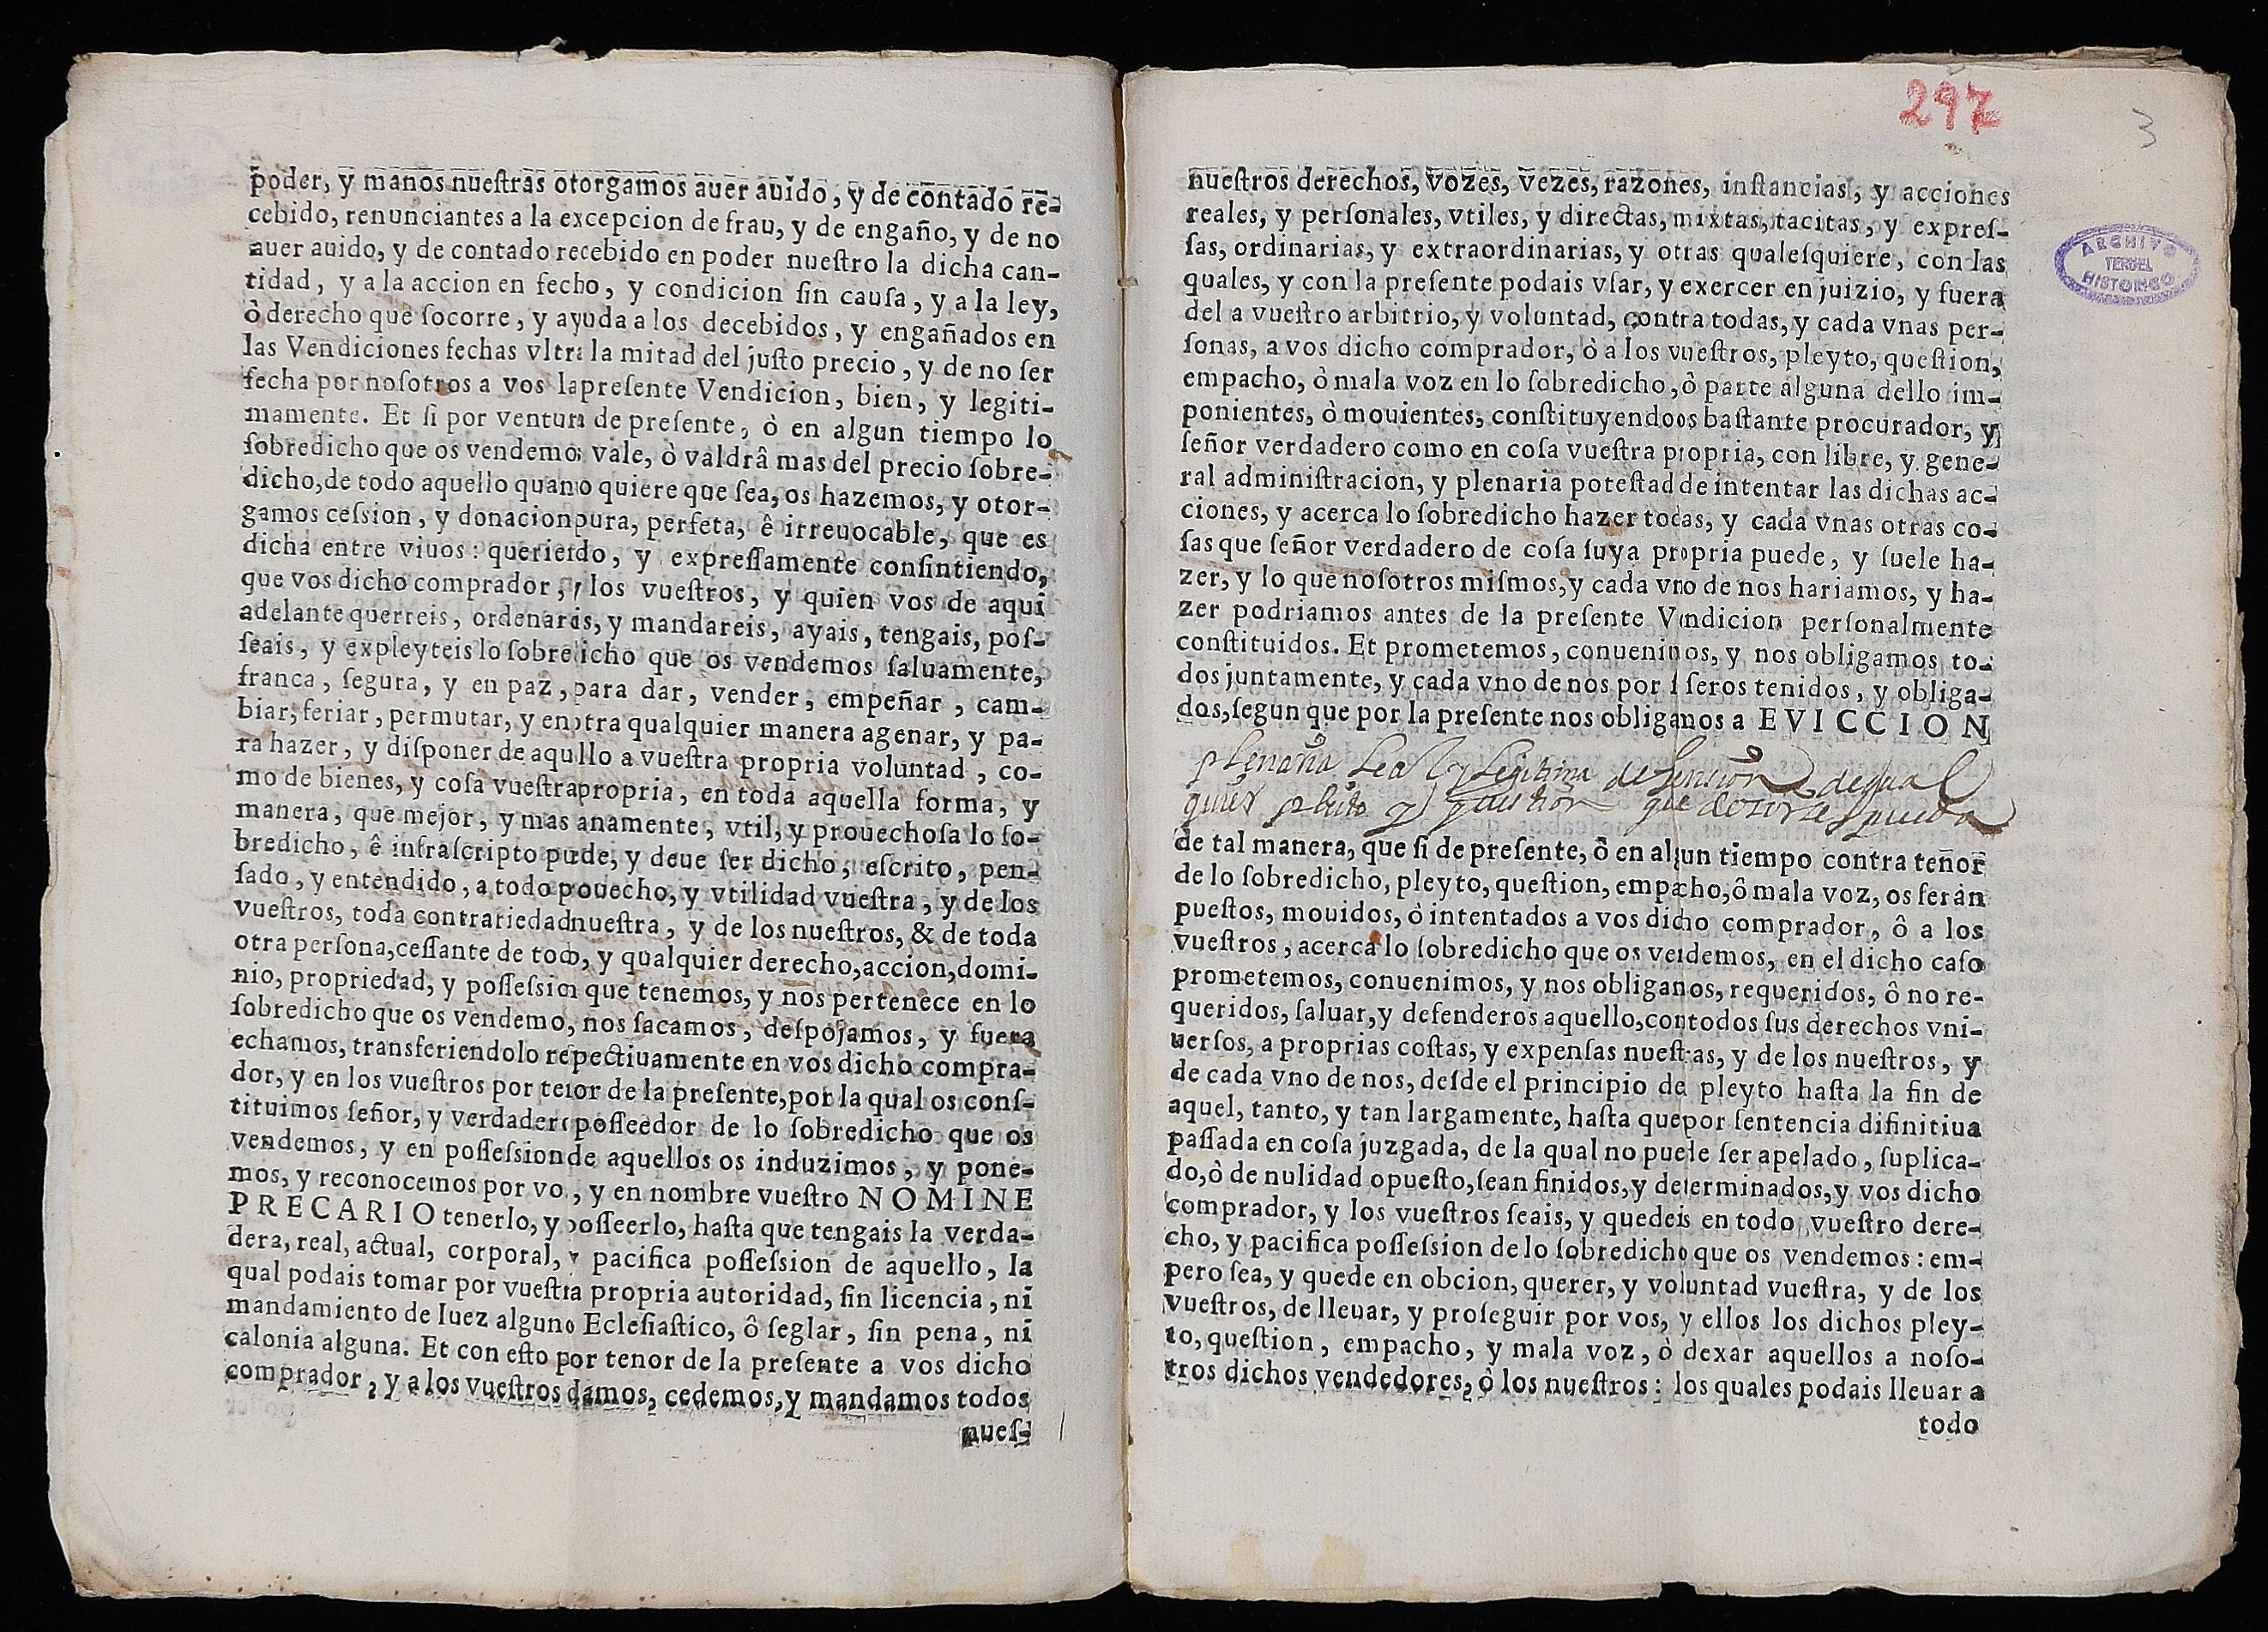 poder, y manos nueſtras otorgamos auer auido, y de contado re-
cebido, renunciantes a la excepcion de frau, y de engaño, y de no
auer auido, y de contado recebido en poder nueſtro la dicha can-
tidad, y a la accion en fecho, y condicion ſin cauſa, y a la ley,
ò derecho que ſocorre, y ayuda a los decebidos, y engañados en
las Vendiciones fechas vltra la mitad del juſto precio, y de no ſer
fecha por noſotros a vos la preſente Vendicion, bien, y legiti-
mamente. Et ſi por ventura de preſente, ò en algun tiempo lo
ſobredicho que os vendemos vale, ò valdrâ mas del precio ſobre-
dicho, de todo aquello quanto quiere que ſea, os hazemos, y otor-
gamos ceſsion, y donacion pura, perfeta, ê irreuocable, que es
dicha entre viuos: queriendo, y expreſſamente conſintiendo,
que vos dicho comprador, y los vueſtros, y quien vos de aqui
adelante querreis, ordenareis, y mandareis, ayais, tengais, poſ-
ſeais, y expleyteis lo ſobredicho que os vendemos ſaluamente,
franca, ſegura, y en paz, para dar, vender, empeñar, cam-
biar, feriar, permutar, y en otra qualquier manera agenar, y pa-
ra hazer, y diſponer de aquello a vueſtra propria voluntad, co-
mo de bienes, y coſa vueſtra propria, en toda aquella forma, y
manera, que mejor, y mas sanamente, vtil, y prouechoſa lo ſo-
bredicho, ê infraſcripto puede, y deue ſer dicho, eſcrito, pen-
ſado, y entendido, a todo prouecho, y vtilidad vueſtra, y de los
vueſtros, toda contrariedad nueſtra, y de los nueſtros, & de toda
otra perſona, ceſſante de todo, y qualquier derecho, accion, domi-
nio, propriedad, y poſſeſsion que tenemos, y nos pertenece en lo
ſobredicho que os vendemos, nos ſacamos, deſpojamos, y fuera
echamos, transferiendolo reſpectiuamente en vos dicho compra-
dor, y en los vueſtros por tenor de la preſente, por la qual os conſ-
tituimos ſeñor, y verdadero poſſeedor de lo ſobredicho que os
vendemos, y en poſſeſsion de aquellos os induzimos, y pone-
mos, y reconocemos por vos, y en nombre vueſtro NOMINE
PRECARIO tenerlo, y poſſeerlo, haſta que tengais la verda-
dera, real, actual, corporal, y pacifica poſſeſsion de aquello, la
qual podais tomar por vueſtra propria autoridad, ſin licencia, ni
mandamiento de Iuez alguno Ecleſiaſtico, ô ſeglar, ſin pena, ni
calonia alguna. Et con eſto por tenor de la preſente a vos dicho
comprador, y a los vueſtros damos, cedemos, y mandamos todos
nueſ-
297
3
ARCHIVO
TERUEL
HISTORICO
nueſtros derechos, vozes, vezes, razones, inſtancias, y acciones
reales, y perſonales, vtiles, y directas, mixtas, tacitas, y expreſ-
ſas, ordinarias, y extraordinarias, y otras qualeſquiere, con las
quales, y con la preſente podais vſar, y exercer en juizio, y fuera
del a vueſtro arbitrio, y voluntad, contra todas, y cada vnas per-
ſonas, a vos dicho comprador, ò a los vueſtros, pleyto, queſtion,
empacho, ò mala voz en lo ſobredicho, ò parte alguna dello im-
ponientes, ò mouientes, conſtituyendoos baſtante procurador, y
ſeñor verdadero como en coſa vueſtra propria, con libre, y gene-
ral adminiſtracion, y plenaria poteſtad de intentar las dichas ac-
ciones, y acerca lo ſobredicho hazer todas, y cada vnas otras co-
ſas que ſeñor verdadero de coſa ſuya propria puede, y ſuele ha-
zer, y lo que noſotros miſmos, y cada vno de nos hariamos, y ha-
zer podriamos antes de la preſente Vendicion perſonalmente
conſtituidos. Et prometemos, conuenimos, y nos obligamos to-
dos juntamente, y cada vno de nos por ſi ſeros tenidos, y obliga-
dos, ſegun que por la preſente nos obligamos a EVICCION
plenaria leal y legitima defension de qual
quiere pleito y question que dezirse pueda
de tal manera, que ſi de preſente, ô en algun tiempo contra tenor
de lo ſobredicho, pleyto, queſtion, empacho, ô mala voz, os ſerân
pueſtos, mouidos, ò intentados a vos dicho comprador, ô a los
vueſtros, acerca lo ſobredicho que os vendemos, en el dicho caſo
prometemos, conuenimos, y nos obligamos, requeridos, ô no re-
queridos, ſaluar, y defenderos aquello, con todos ſus derechos vni-
uerſos, a proprias coſtas, y expenſas nueſtras, y de los nueſtros, y
de cada vno de nos, deſde el principio de pleyto haſta la fin de
aquel, tanto, y tan largamente, haſta que por ſentencia difinitiua
paſſada en coſa juzgada, de la qual no puede ſer apelado, ſuplica-
do, ô de nulidad opueſto, ſean finidos, y determinados, y vos dicho
comprador, y los vueſtros ſeais, y quedeis en todo vueſtro dere-
cho, y pacifica poſſeſsion de lo ſobredicho que os vendemos: em-
pero ſea, y quede en obcion, querer, y voluntad vueſtra, y de los
vueſtros, de lleuar, y proſeguir por vos, y ellos los dichos pley-
to, queſtion, empacho, y mala voz, ò dexar aquellos a noſo-
tros dichos vendedores, ò los nueſtros: los quales podais lleuar a
todo